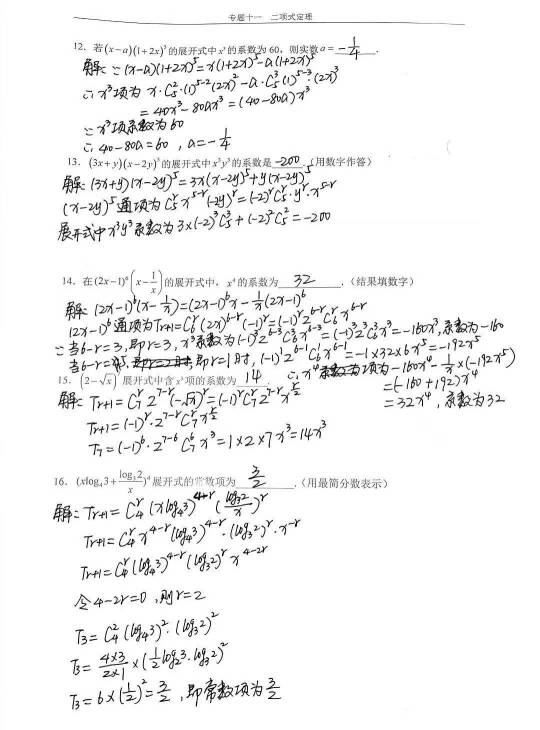 专题十一 二项式定理
12. 若(x-a)(1+2x)⁵的展开式中x³的系数为60，则实数a= -1/4 .
解: ∵(x-a)(1+2x)⁵=x(1+2x)⁵-a(1+2x)⁵
∴x³项为 x·C₅²·(1)⁵⁻²(2x)²-a·C₅³(1)⁵⁻³·(2x)³
=40x³-80ax³=(40-80a)x³
∵x³项系数为60
∴40-80a=60，a=-1/4
13. (3x+y)(x-2y)⁵的展开式中x³y³的系数是 -200 .(用数字作答)
解: (3x+y)(x-2y)⁵=3x(x-2y)⁵+y(x-2y)⁵
(x-2y)⁵通项为C₅ʳx⁵⁻ʳ(-2y)ʳ=(-2)ʳC₅ʳ·yʳ·x⁵⁻ʳ
展开式中x³y³系数为3×(-2)³C₅³+(-2)²C₅²=-200
14. 在(2x-1)⁶(x-1/x)的展开式中，x⁴的系数为 32 .(结果填数字)
解: (2x-1)⁶(x-1/x)=(2x-1)⁶x-1/x(2x-1)⁶
(2x-1)⁶通项为Tr+1=C₆ʳ(2x)⁶⁻ʳ(-1)ʳ=(-1)ʳ2⁶⁻ʳC₆ʳx⁶⁻ʳ
∵当6-r=3，即r=3，x³系数为(-1)³2⁶⁻³C₆³x⁶⁻³=(-1)³2³C₆³x³=-160x³，系数为-160
当6-r=5，即r=1时，(-1)¹2⁶⁻¹C₆¹x⁶⁻¹=-1×32×6x⁵=-192x⁵
∴x⁴项为-160x⁴-1/x×(-192x⁵)
=(-160+192)x⁴
=32x⁴，系数为32
15. (2-√x)⁷展开式中含x³项的系数为 14 .
解: Tr+1=C₇ʳ2⁷⁻ʳ(-√x)ʳ=(-1)ʳC₇ʳ2⁷⁻ʳx^(r/2)
Tr+1=(-1)ʳ·2⁷⁻ʳC₇ʳx^(r/2)
T₇=(-1)⁶·2⁷⁻⁶C₇⁶x³=1×2×7x³=14x³
16. (xlog₄3+log₃2/x)⁴展开式的常数项为 3/2 .(用最简分数表示)
解: Tr+1=C₄ʳ(xlog₄3)⁴⁻ʳ(log₃2/x)ʳ
Tr+1=C₄ʳx⁴⁻ʳ(log₄3)⁴⁻ʳ·(log₃2)ʳ·x⁻ʳ
Tr+1=C₄ʳ(log₄3)⁴⁻ʳ(log₃2)ʳx⁴⁻²ʳ
令4-2r=0，则r=2
T₃=C₄²(log₄3)²·(log₃2)²
T₃=4×3/2×1×(1/2log₂3·log₃2)²
T₃=6×(1/2)²=3/2，即常数项为3/2